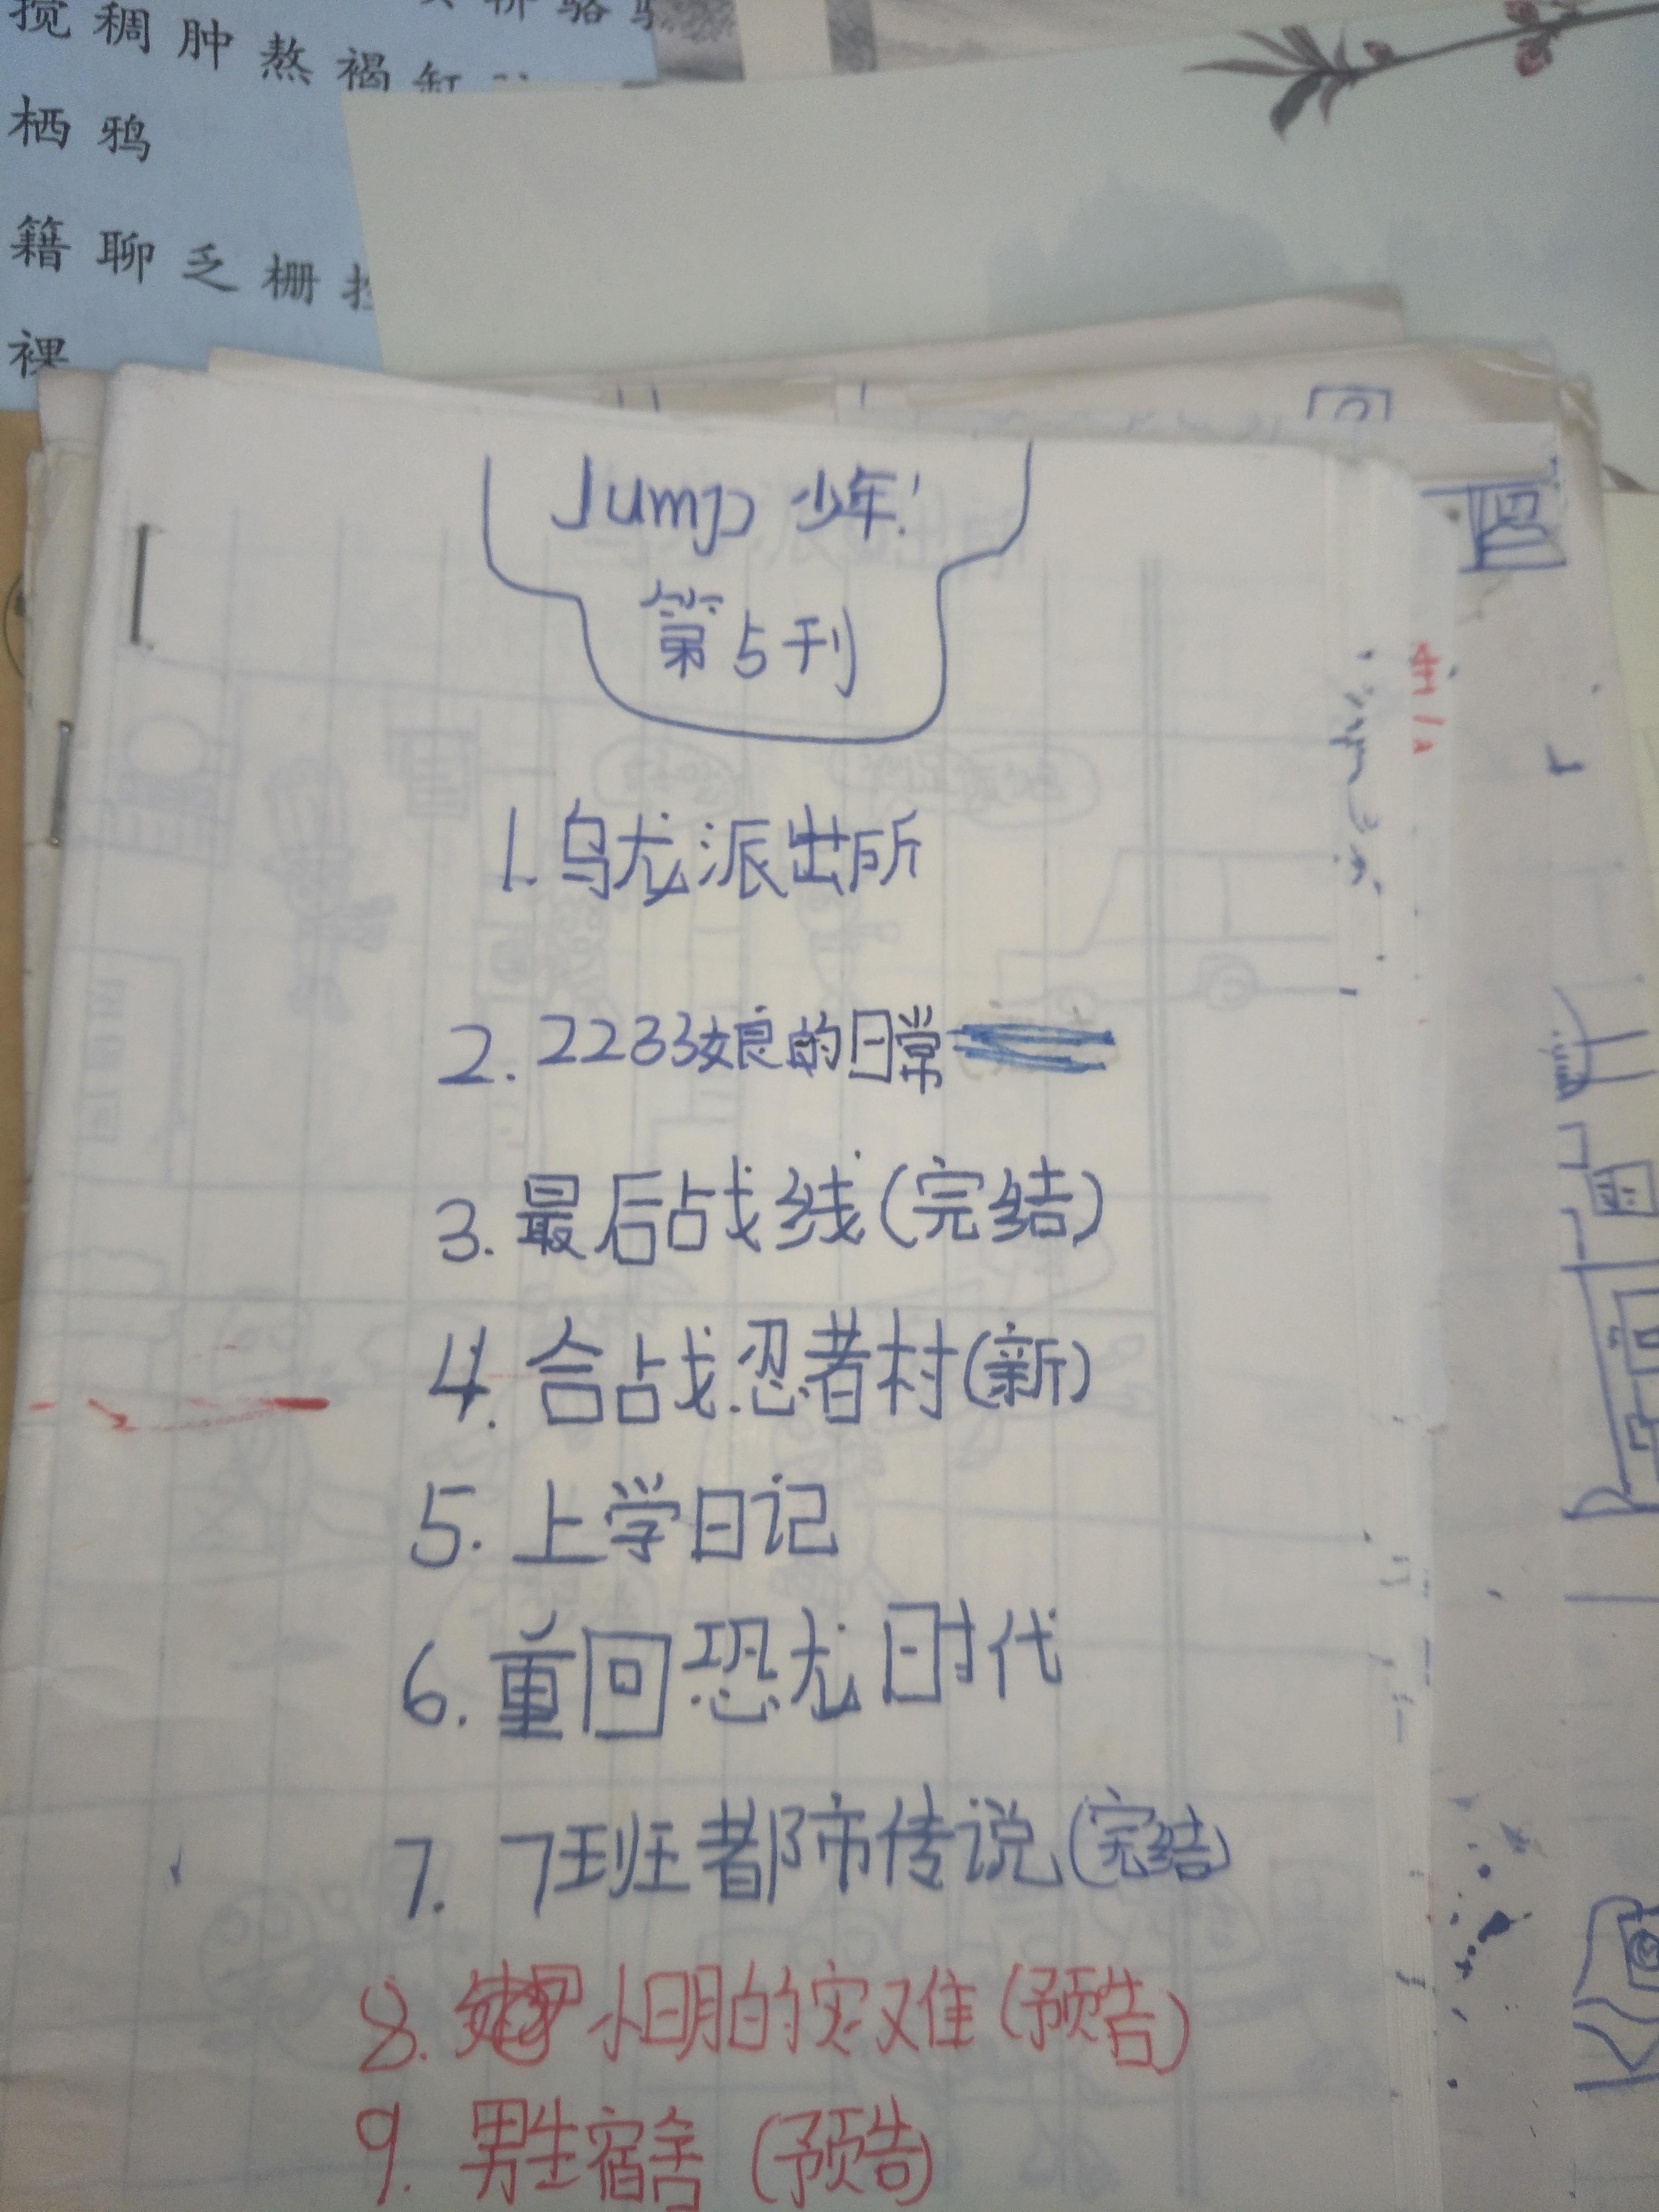 搅稠肿熬褐缸
栖鸦
籍聊乏栅
裸
Jump 少年!
第5刊
1.乌龙派出所
2.2233娘的日常
3.最后战线(完结)
4.合战忍者村(新)
5.上学日记
6.重回恐龙时代
7.7班都市传说(完结)
8.小明的灾难(预告)
9.男生宿舍(预告)